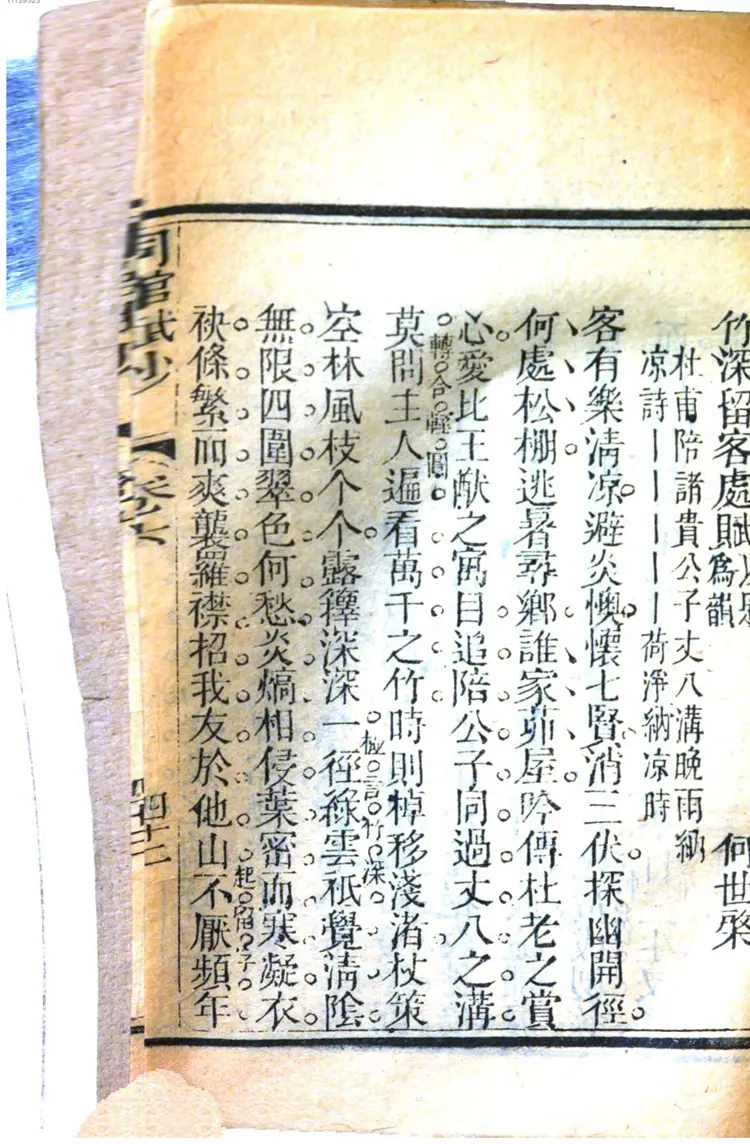 竹深留客處賦 何世
爲韻
杜甫陪諸貴公子丈八溝晚雨納
凉詩｜｜｜｜｜荷淨納凉時
客有樂淸凉避炎懊懷七賢消三伏探幽開徑
何處松棚逃暑尋鄉誰家茆屋吟傳杜老之賞
心愛比王猷之寓目追陪公子同過丈八之溝
轉合輕圓
莫問主人遍看萬千之竹時則棹移淺渚杖策
極言竹深
空林風枝个个露籜深深一徑綠雲祇覺淸陰
無限四圍翠色何愁炎熇相侵葉密而寒凝衣
起留字
袂條繁而爽襲羅襟招我友於他山不厭頻年
同館賦鈔
四十二
11129323